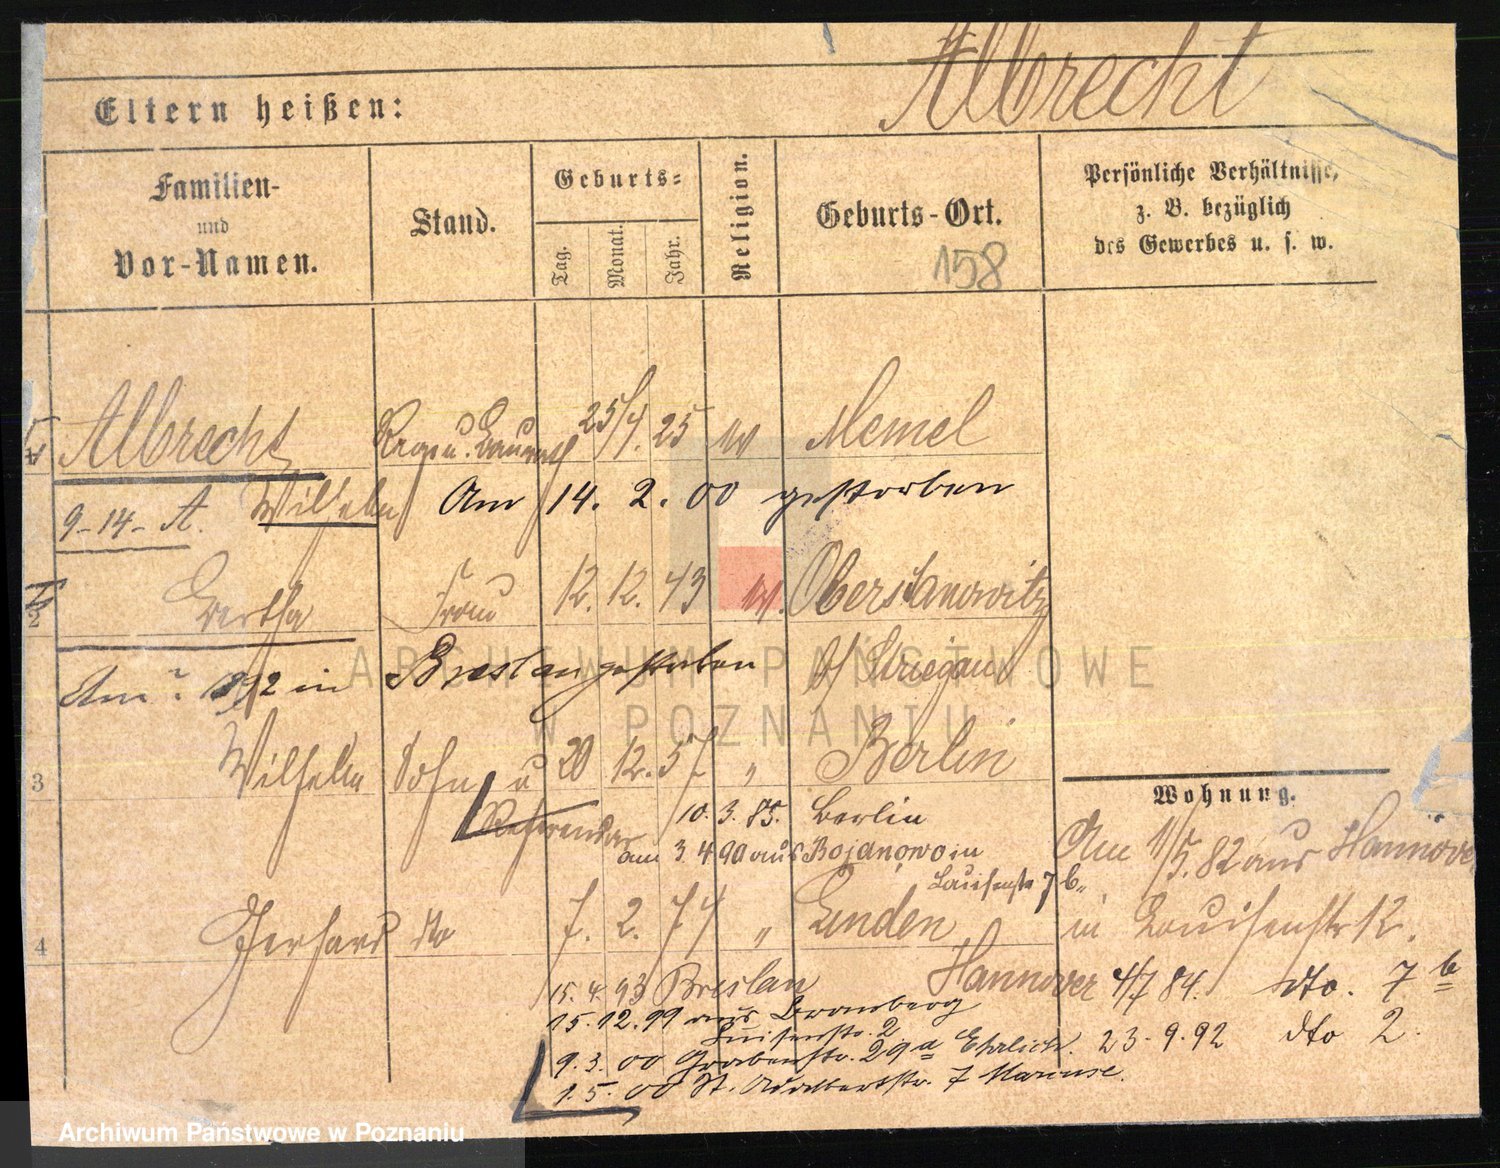 Albrecht
Eltern heißen:
Familien-
und
Vor-Namen.
Stand.
Geburts-
Tag. Monat. Jahr.
Religion.
Geburts-Ort.
158
Persönliche Verhältnisse,
z. B. bezüglich
des Gewerbes u. s. w.
Albrecht Regs u. Baurath 25/4. 25 Memel
9-14-A. Wilhelm Am 14. 2. 00 gestorben
Bertha Frau 12. 12. 43 Oberstanowitz
b/ Striegau
Am ? 892 in Breslau gestorben
3 Wilhelm Sohn u 20 12. 57 " Berlin
Referendar 10. 3. 85. Berlin
am 3. 4 90 aus Bojanowo in
Louisenstr 7 b.
4 Gerhard dto 7. 2. 74 " Linden
Hannover
15. 4. 93 Breslau
15. 12. 99 aus Bromberg
Luisenstr. 2
9. 3. 00 Grabenstr. 29a Ehrlich.
1. 5. 00 St. Adalbertstr. 7
Wohnung.
Am 1/5. 82 aus Hannover
in Louisenstr 12.
4/7 84. dto. 7 b
23. 9. 92 dto 2.
ARCHIWUM PAŃSTWOWE
W POZNANIU
Archiwum Państwowe w Poznaniu